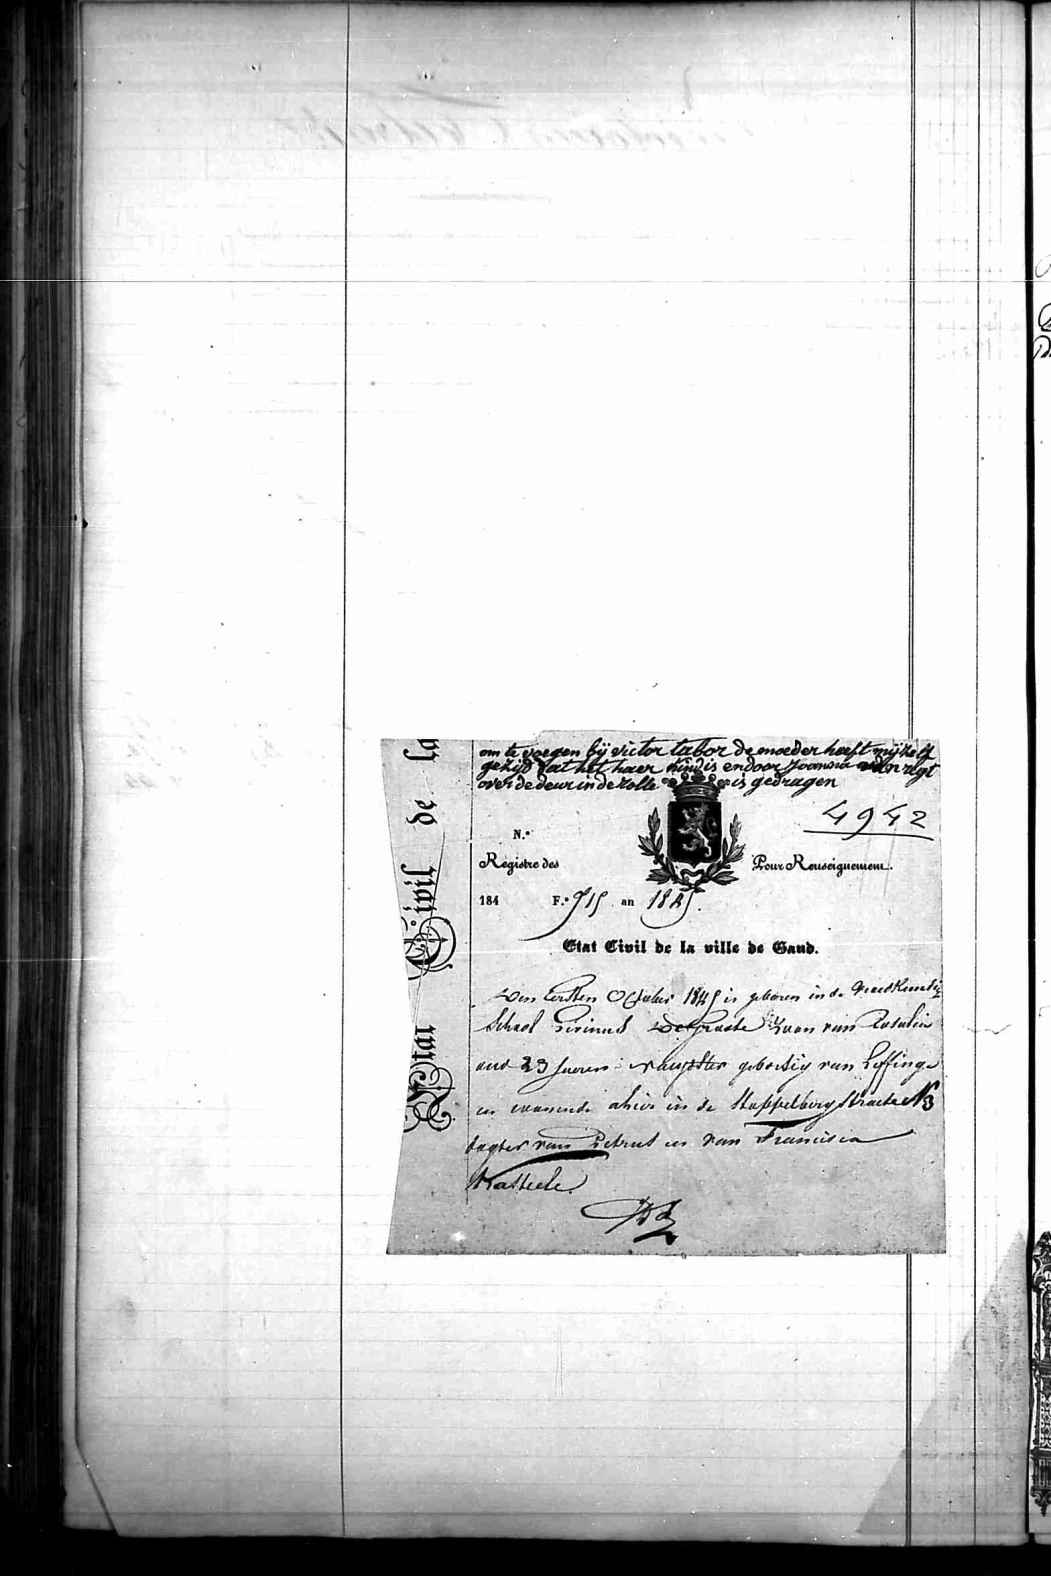 om te voegen bij victor tabor de moeder heeft mij zelf
gezijd dat het haer kind is en door Joanna van regt
over de deur in de rolle is gedragen
4942
N.o
Registre des
Pour Renseignement.
184 F.o 915 an 1845.
Etat Civil de la ville de Gand.
Etat Civil de la
Den Eersten October 1845 is geboren in de vroedkundig
School Livinus Degraete Zoon van Rosalie
oud 23 Jaeren geboortig van Leffinge
en wonende alhier in de Stoppelberg Straete N 3
dogter van Petrus en van Francisca
Kasteele.